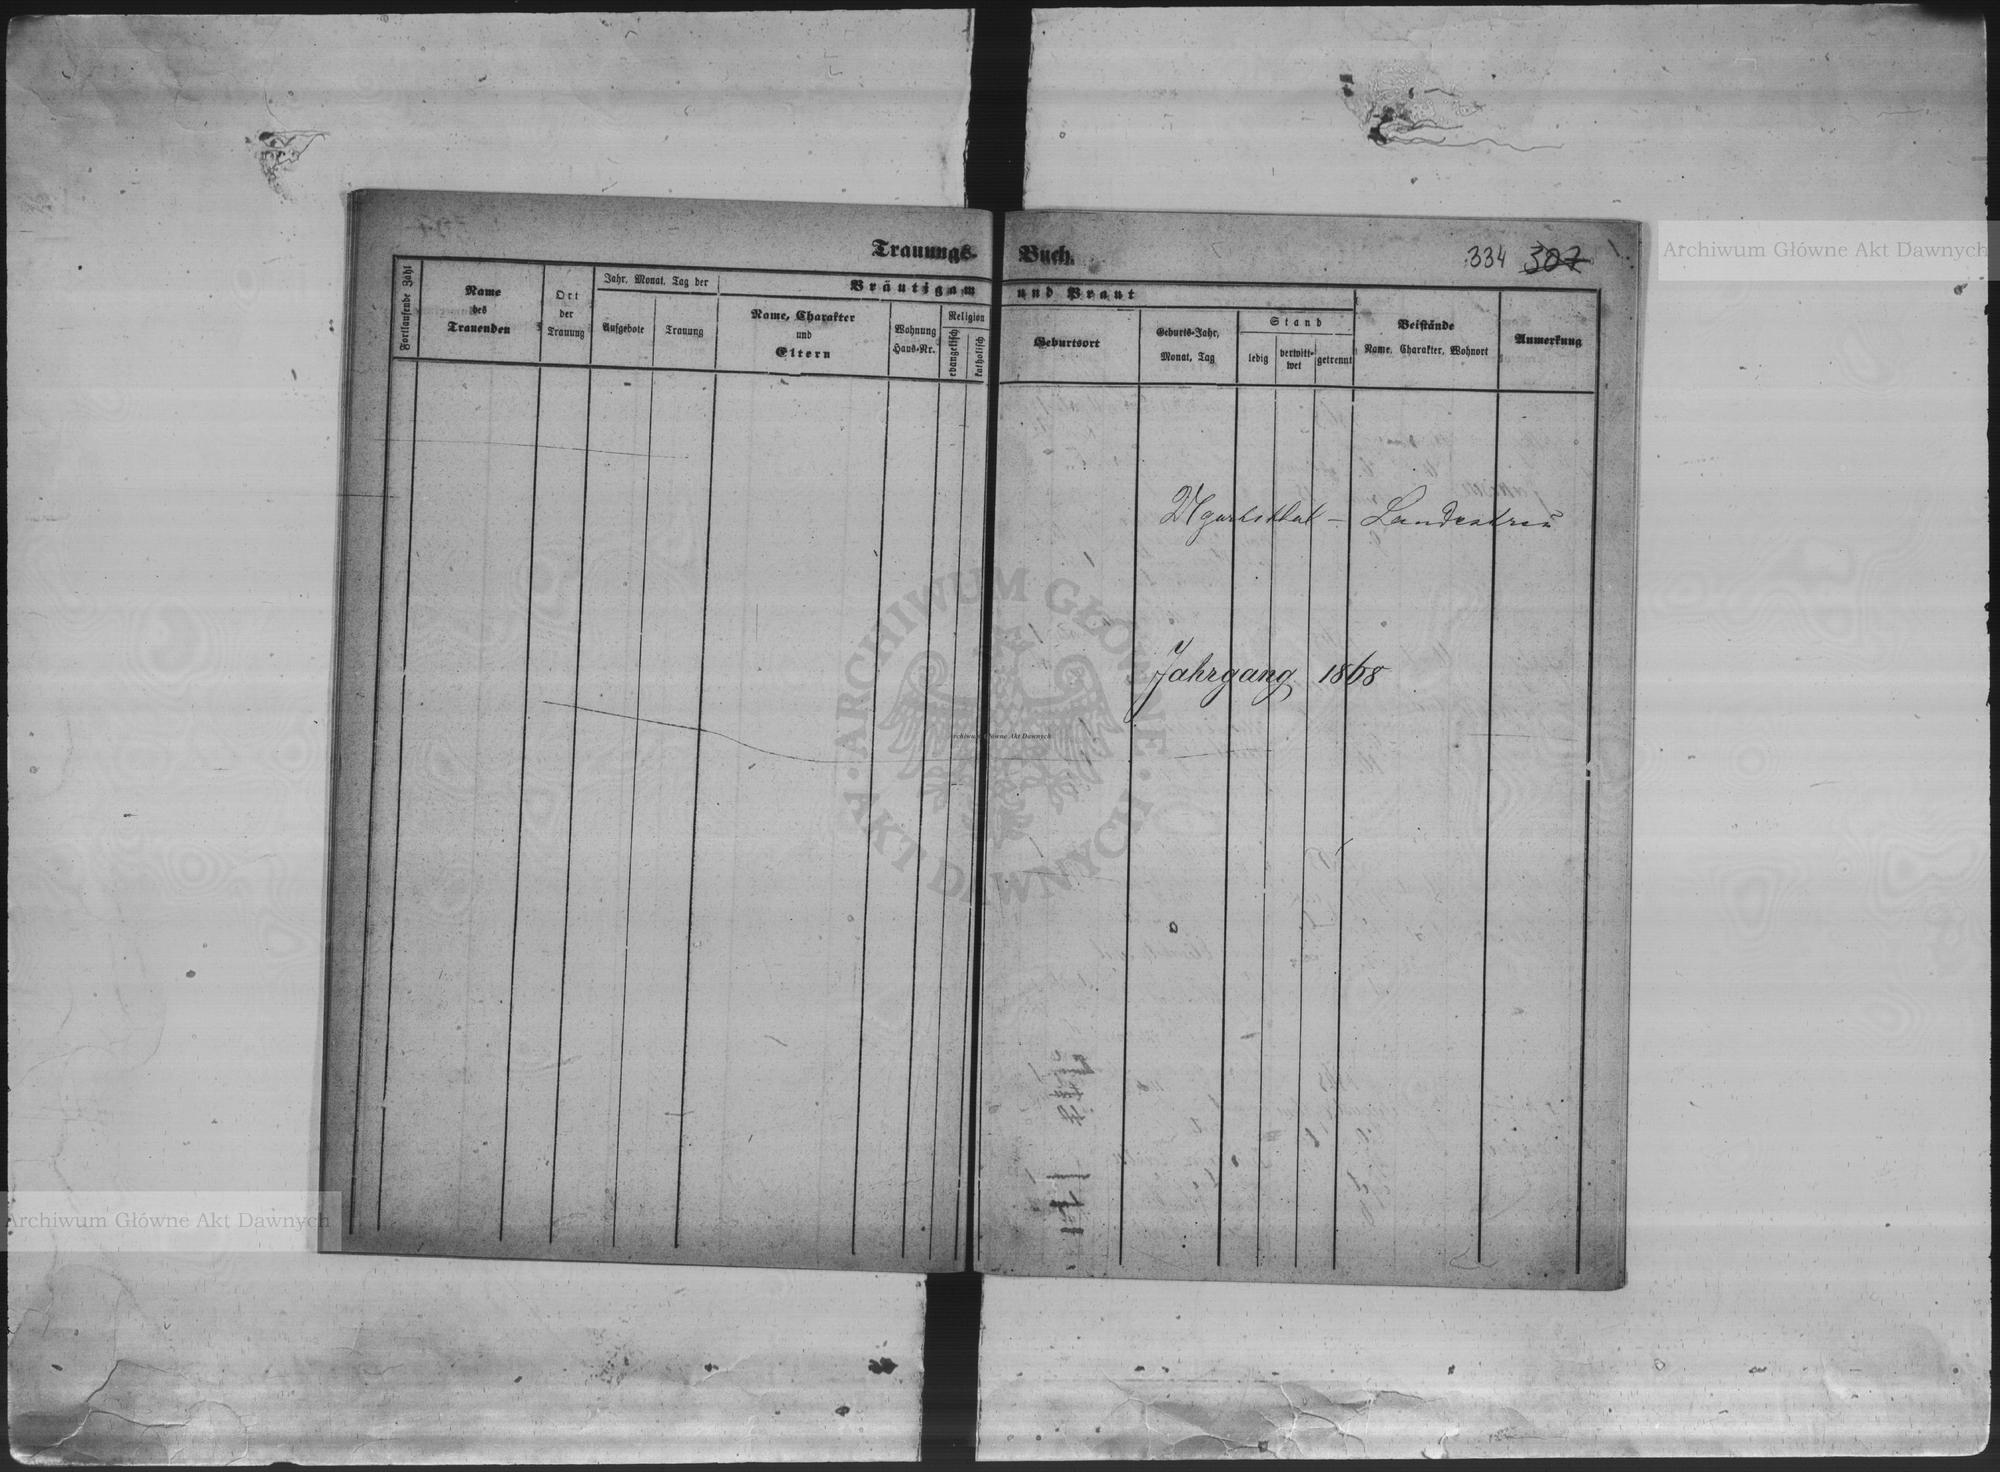 Trauungs- Buch.
334 307
Fortlaufende Zahl
Name
des
Trauenden
Ort
der
Trauung
Jahr, Monat, Tag der
Aufgebote
Trauung
Bräutigam und Braut
Name, Charakter
und
Eltern
Wohnung
Haus-Nr.
Religion
evangelisch
katholisch
Geburtsort
Geburts-Jahr,
Monat, Tag
Stand
ledig
verwitt-
wet
getrennt
Beistände
Name, Charakter, Wohnort
Anmerkung
Ugartsthal – Landestreu
Jahrgang 1868
Archiwum Główne Akt Dawnych
Archiwum Główne Akt Dawnych
Archiwum Główne Akt Dawnych
ARCHIWUM GŁÓWNE
· AKT DAWNYCH ·